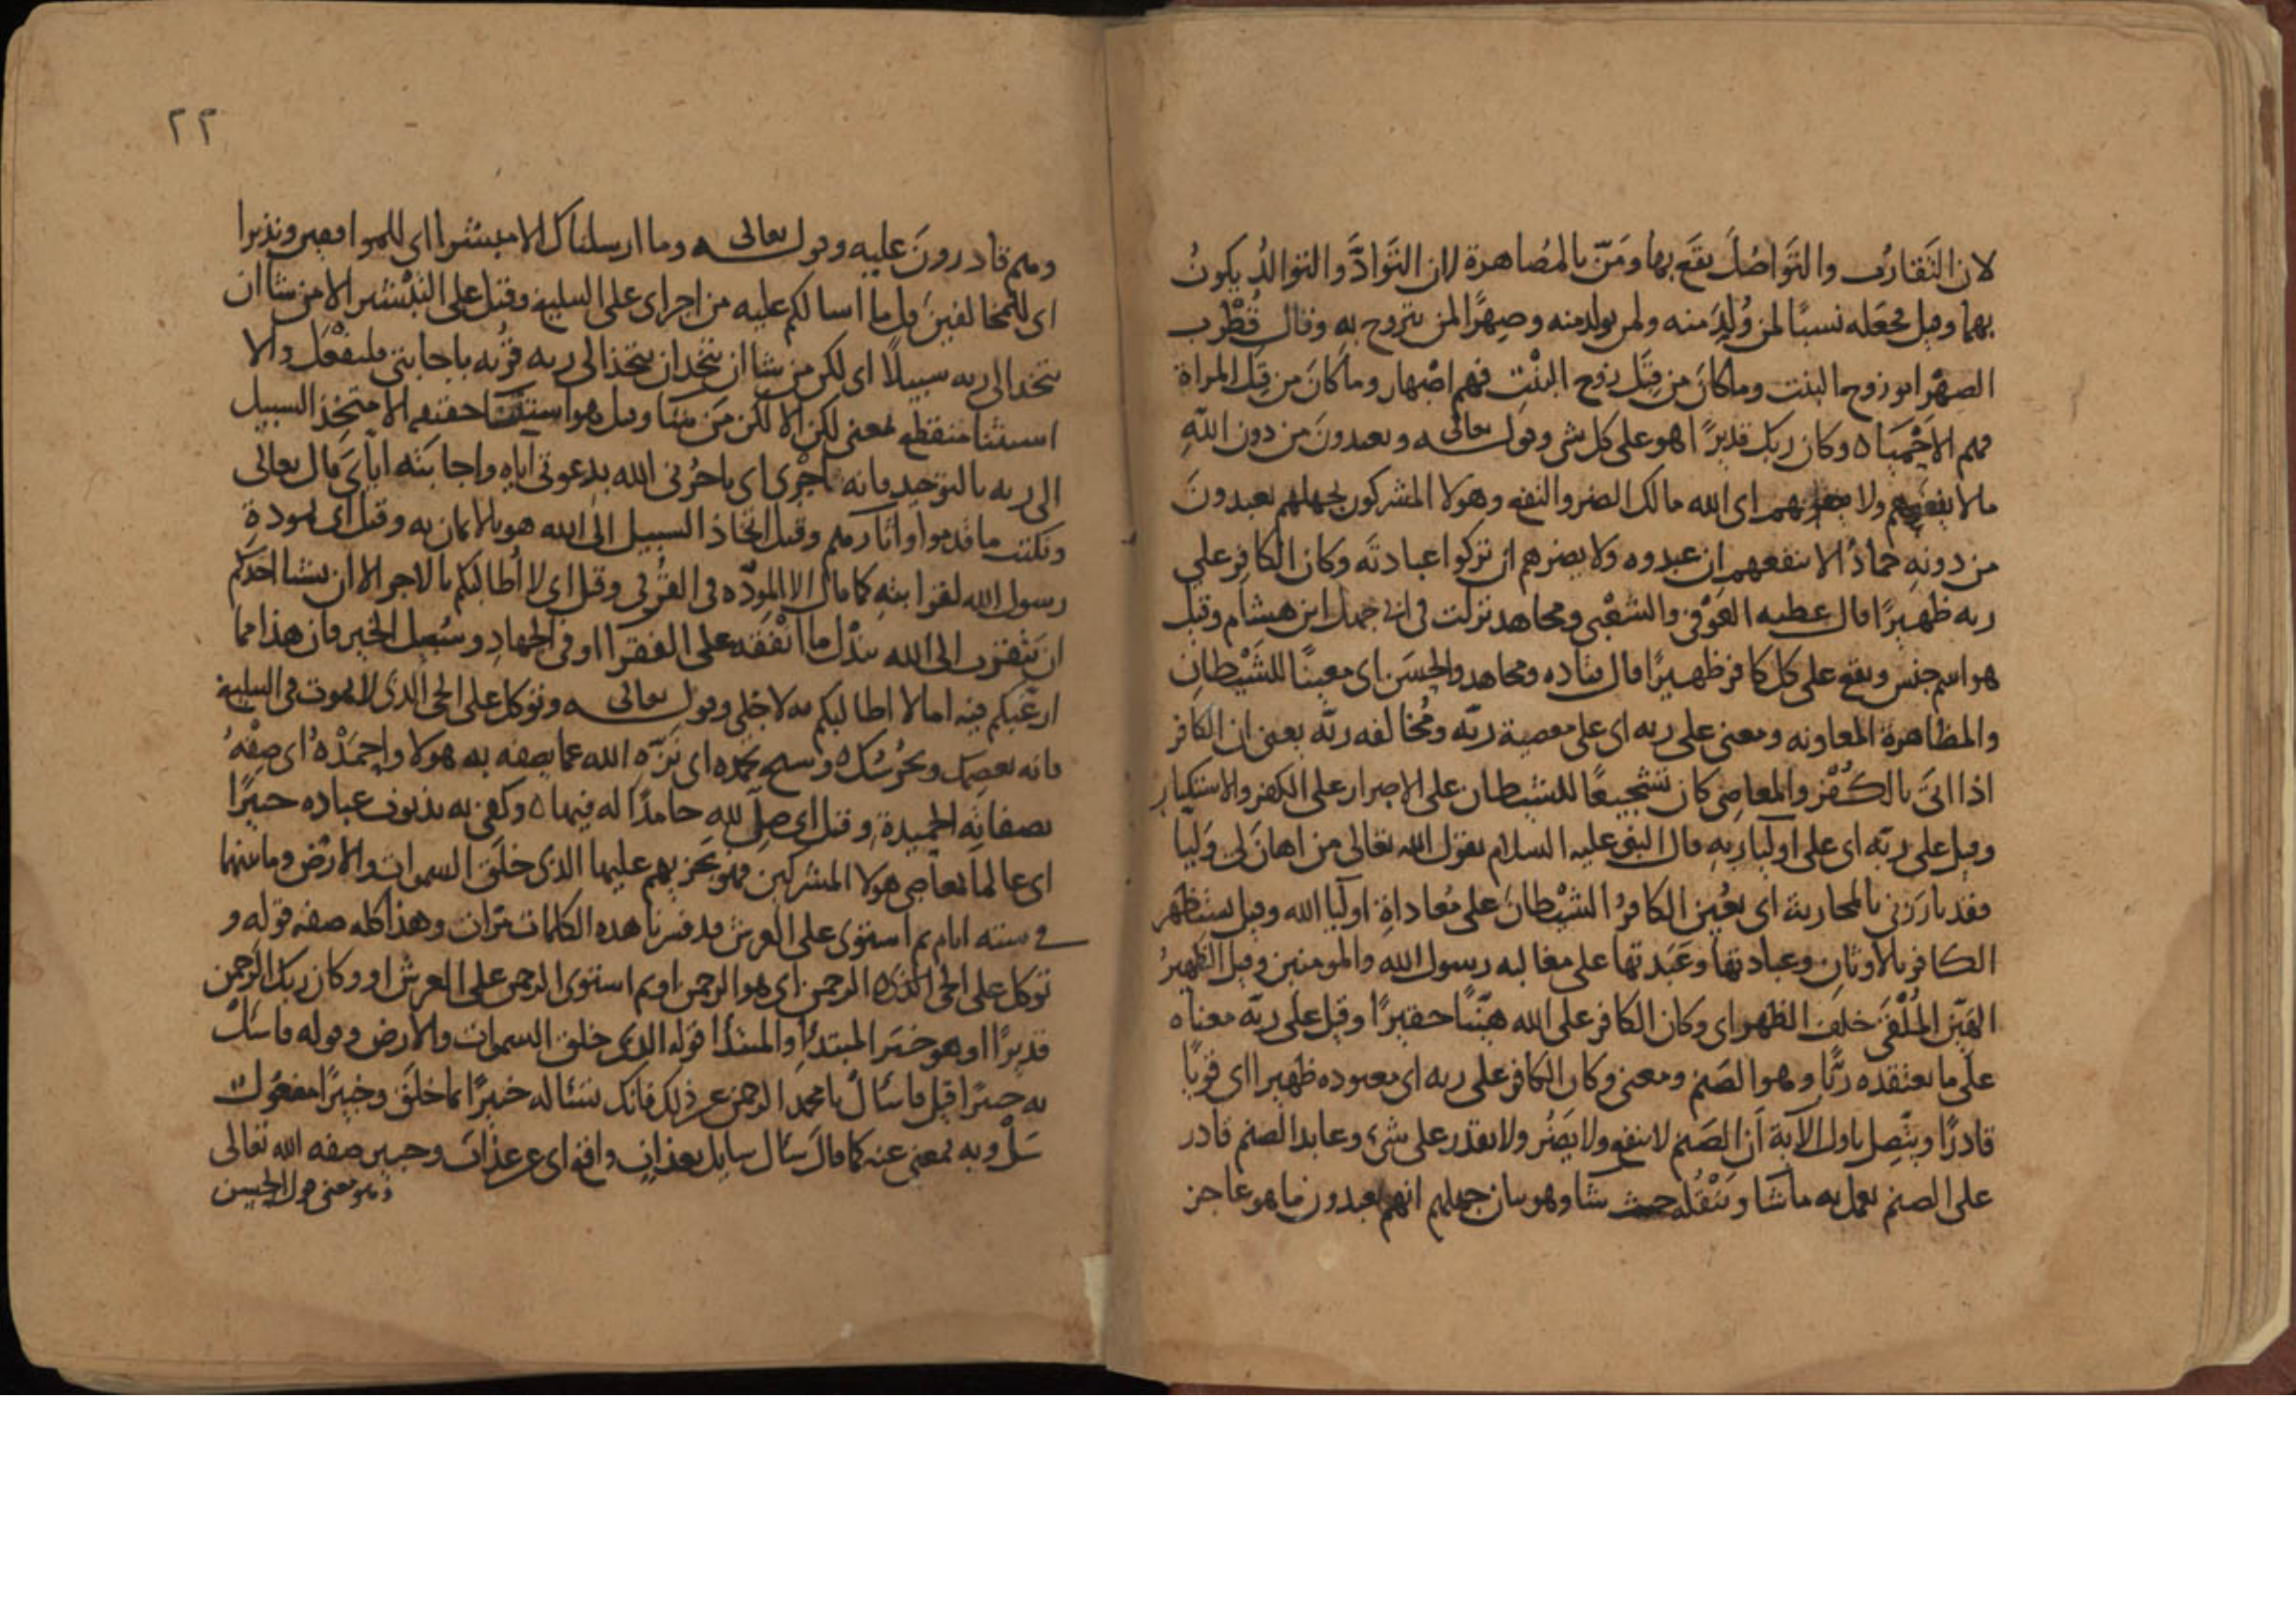 لان التقارب والتواصل يقع بها ومن بالمصاهرة لان التواد والتوالد يكون
بهما وقيل فجعله نسبا لمن ولد منه ولمن يولد منه وصهرا لمن يتزوج به وقال قطرب
الصهر ابو زوج البنت وما كان من قبل زوج البنت فهم اصهار وما كان من قبل المراة
فهم الاحماه وكان ربك قديرا هو على كل شي وقوله تعالى ويعبدون من دون الله
مالا ينفعهم ولا يضرهم اى الله مالك الضر والنفع وهولا المشركون لجهلهم يعبدون
من دونه جمادا لا ينفعهم ان عبدوه ولا يضرهم ان تركوا عبادته وكان الكافر على
ربه ظهيرا قال عطيه العوفى والشعبى ومجاهد نزلت فى ابى جهل ابن هشام وقيل
هو اسم جنس ويقع على كل كافر ظهيرا قال قتاده ومجاهد والحسن اى معينا للشيطان
والمظاهرة المعاونه ومعنى على ربه اى على معصية ربه ومخالفه ربه يعنى ان الكافر
اذا اتى بالكفر والمعاصى كان تشجيعا للشيطان على الاصرار على الكفر والاستكبار
وقيل على ربه اى على اوليا ربه قال النبى عليه السلام يقول الله تعالى من اهان لى وليا
فقد بارزنى بالمحاربة اى يعين الكافر الشيطان على معاداة اوليا الله وقيل يستظهر
الكافر بالاوثان وعبادتها وعبدتها على مغالبه رسول الله والمومنين وقيل الظهير
الهين الملقى خلف الظهر اى وكان الكافر على الله هينا حقيرا وقيل على ربه معناه
على ما يعتقده ربا وهو الصنم ومعنى وكان الكافر على ربه اى معبوده ظهيرا اى قويا
قادرا ويتصل باول الاية ان الصنم لا ينفع ولا يضر ولا يقدر على شىء وعابد الصنم قادر
على الصنم يعمل به ما شا وينقله حيث شا وهو بيان جهلهم انهم يعبدون ما هو عاجز
٢٢
وهم قادرون عليه وقوله تعالى وما ارسلناك الا مبشرا اى للموافقين ونذيرا
اى للمخالفين قل ما اسالكم عليه من اجر اى على التبليغ وقيل على التبشير الا من شا ان
يتخذ الى ربه سبيلا اى لكن من شا ان يتخذ ان يتخذ الى ربه قربه باجابتى فليفعل والا
استثنا منقطع بمعنى لكن الا لكن من شا وقيل هو استثنا حقيقه الا متخذ السبيل
الى ربه بالتوحيد فانه اجرى اى ياجرنى الله بدعوتى اياه واجابته اياى قال تعالى
ونكتب ما قدموا واثارهم وقيل اتخاذ السبيل الى الله هو بالايمان به وقيل اى بمودة
رسول الله لقرابته كما قال الا المودة فى القربى وقيل اى لا اطالبكم بالاجر الا ان يشا احدكم
ان يتقرب الى الله ببذل ما انفقه على الفقرا او فى الجهاد وسبيل الخير فان هذا مما
ارغبكم فيه اما لا اطالبكم به لاجلى وقوله تعالى وتوكل على الحى الذى لا يموت فى التبليغ
فانه يعصمك ويحرسك ه وسبح بحمده اى نزه الله عما يصفه به هولا واحمده اى صفه
بصفاته الحميدة وقيل اى صل لله حامدا له فيهاه وكفى به بذنوب عباده خبيرا
اى عالما بمعاصى هولا المشركين فهو يجزيهم عليها الذى خلق السموات والارض وما بينهما
فى سته ايام ثم استوى على العرش قد فسرنا هذه الكلمات مرات وهذا كله صفه قوله و
توكل على الحى الذى ه الرحمن اى هو الرحمن او ثم استوى الرحمن على العرش او وكان ربك الرحمن
قديرا او هو خبر المبتدا والمبتدا قوله الذى خلق السموات والارض وقوله فاسئل
به خبيرا قيل فاسئال يا محمد الرحمن عن ذلك فانك تسئاله خبيرا بما خلق وخبيرا مفعول
سل وبه بمعنى عنه كما قال سئال سايل بعذاب واقع اى عن عذاب وخبير صفه الله تعالى
وهو معنى قول الحسن